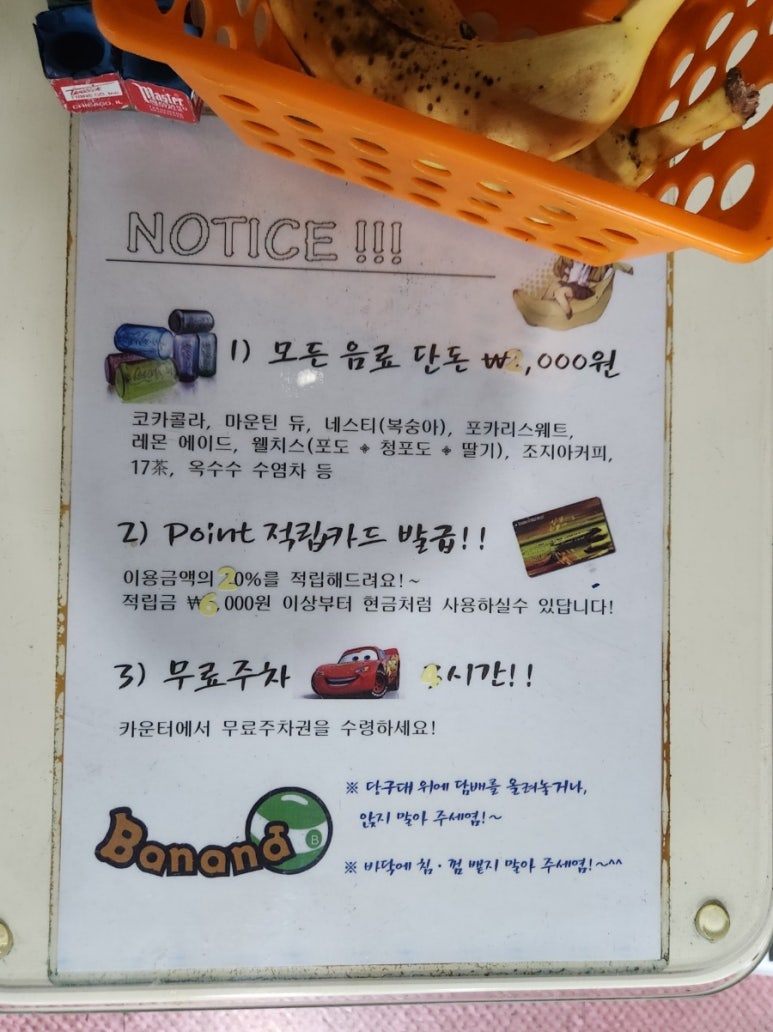 Tweeten
CHICAGO, IL
Master
NOTICE !!!
1) 모든 음료 단돈 ₩2,000원
코카콜라, 마운틴 듀, 네스티(복숭아), 포카리스웨트,
레몬 에이드, 웰치스(포도 * 청포도 * 딸기), 조지아커피,
17茶, 옥수수 수염차 등
2) Point 적립카드 발급!!
이용금액의 20%를 적립해드려요!~
적립금 ₩6,000원 이상부터 현금처럼 사용하실수 있답니다!
3) 무료주차 4시간!!
카운터에서 무료주차권을 수령하세요!
※ 당구대 위에 담배를 올려놓거나,
앉지 말아 주세염!~
Banana B
※ 바닥에 침·껌 뱉지 말아 주세염!~^^